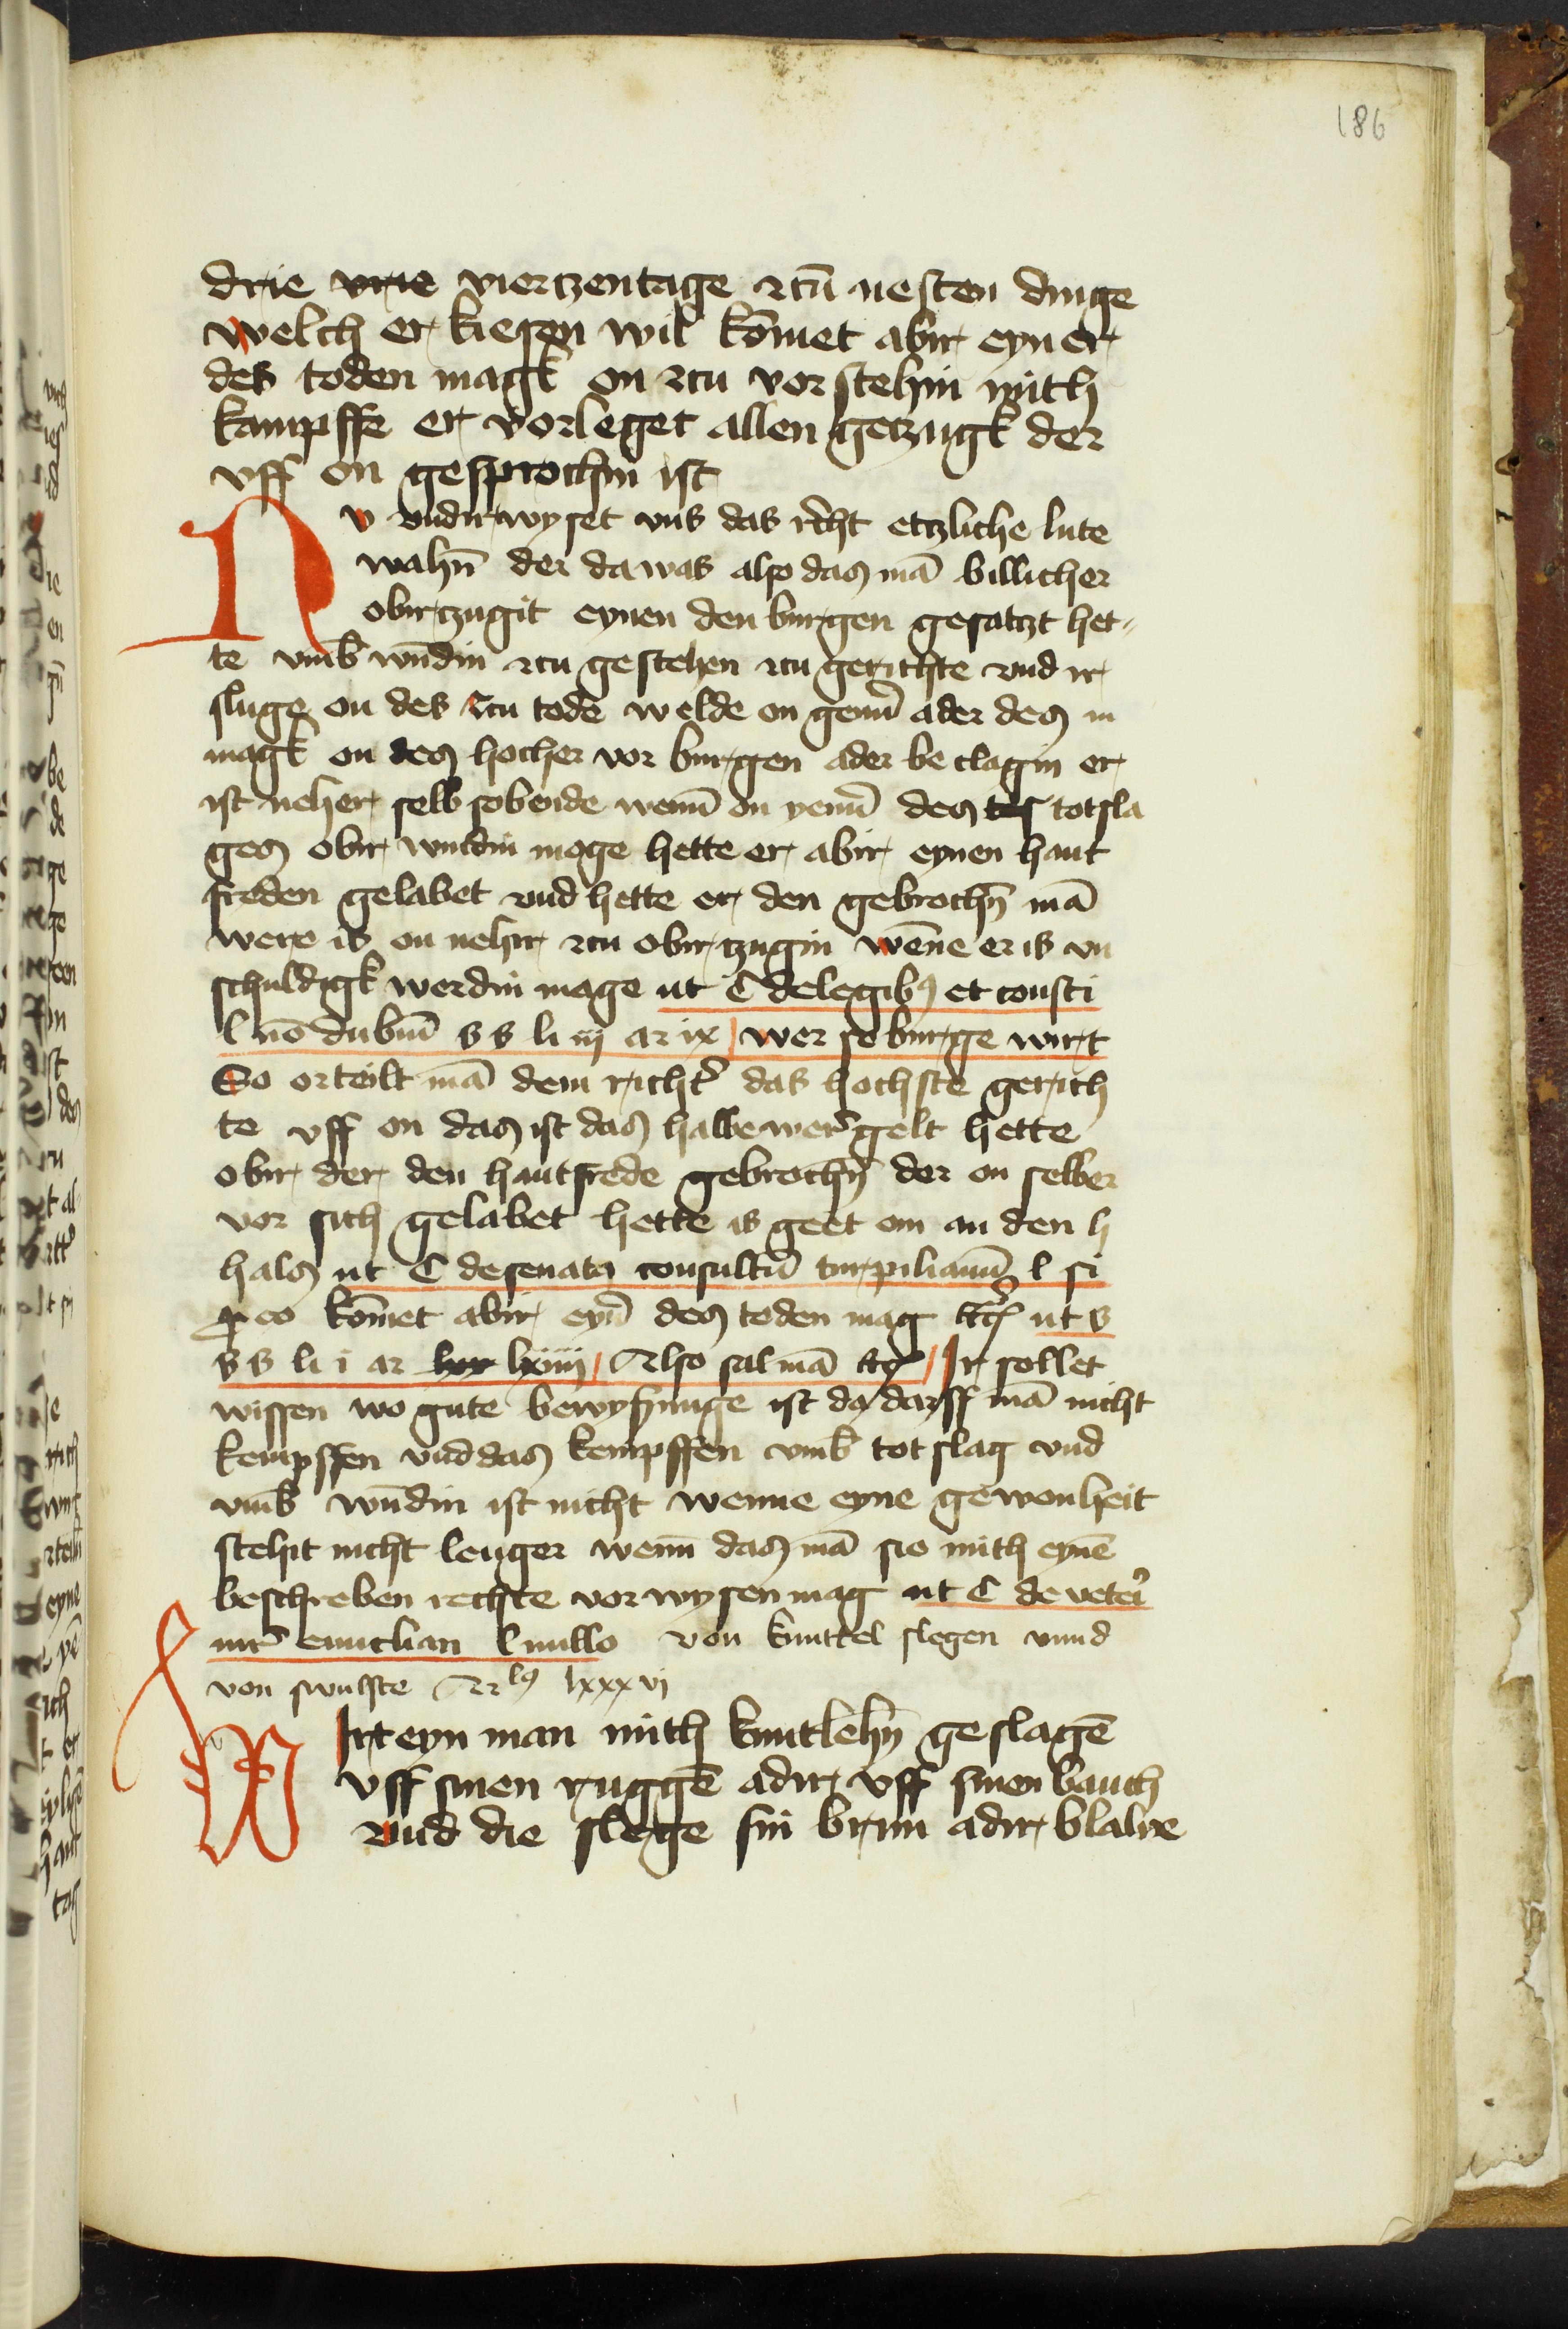 186
drie vrie viertzentage zcū nesten dinge
welch er kiesen wil kōmet abir eyner
des toden magk on zcu vorstehin mith
kampffe er vorleget allen getzugk der
vff on gesprochin ist
Nv vndirwyset vns das recht etzliche lute
wahn̄ der da was also das mā billicher
obirtzugit eynen den burgen gesatzt het-
te vmb wūdin zcu gestehen zcu gerichte vnd ir
sluge on des zcu tode welde on gen̄ ader des in
magk on des hocher vor burgen ader beclagin er
ist neher selb sobende wenn̄ on yen̄ des tes totsla
ges obir wundin moge hette er abir eynen hant
freden gelabet vnd hette er den gebrochn̄ mā
were is on nehir zcu obirtzugin wēne er is vn
schuldigk werdin mage ut C de legibꝰ et consti
l nō dubiū s s li iij ar ix wer so burge wirt
So orteilt mā dem richt' das hochste gerich
te vff on das ist das halbe wergelt hette
obir der den hantfrede gebrochn̄ der on selber
vor sich gelabet hette is geet om an den h
hals ut C de senatu consultū turpilianū l si
ꝓ eo kōmet abir eyn̄ des toden mag etc̄ ut s
s s li i ar lxv lxiiij Also sal mā etc̄ Ir sollet
wissen wo gute bewysunge ist do darff mā nicht
kempffen vnd das kempffen vmb totslag vnd
vmb wūdin ist nicht wenne eyne gewonheit
stehit nicht lenger wenn̄ das mā sie mith eynē
beschreben rechte vorwysen mag ut C de veteri
iur' enuclian l nullo von knuttel slegen vnnd
von swulste Arlꝰ lxxxvj
WIrt eyn man mith knutlehn̄ geslagē
vff sinen ruggē adir vff sinen bauch
vnd die slege sin brun adir blahe